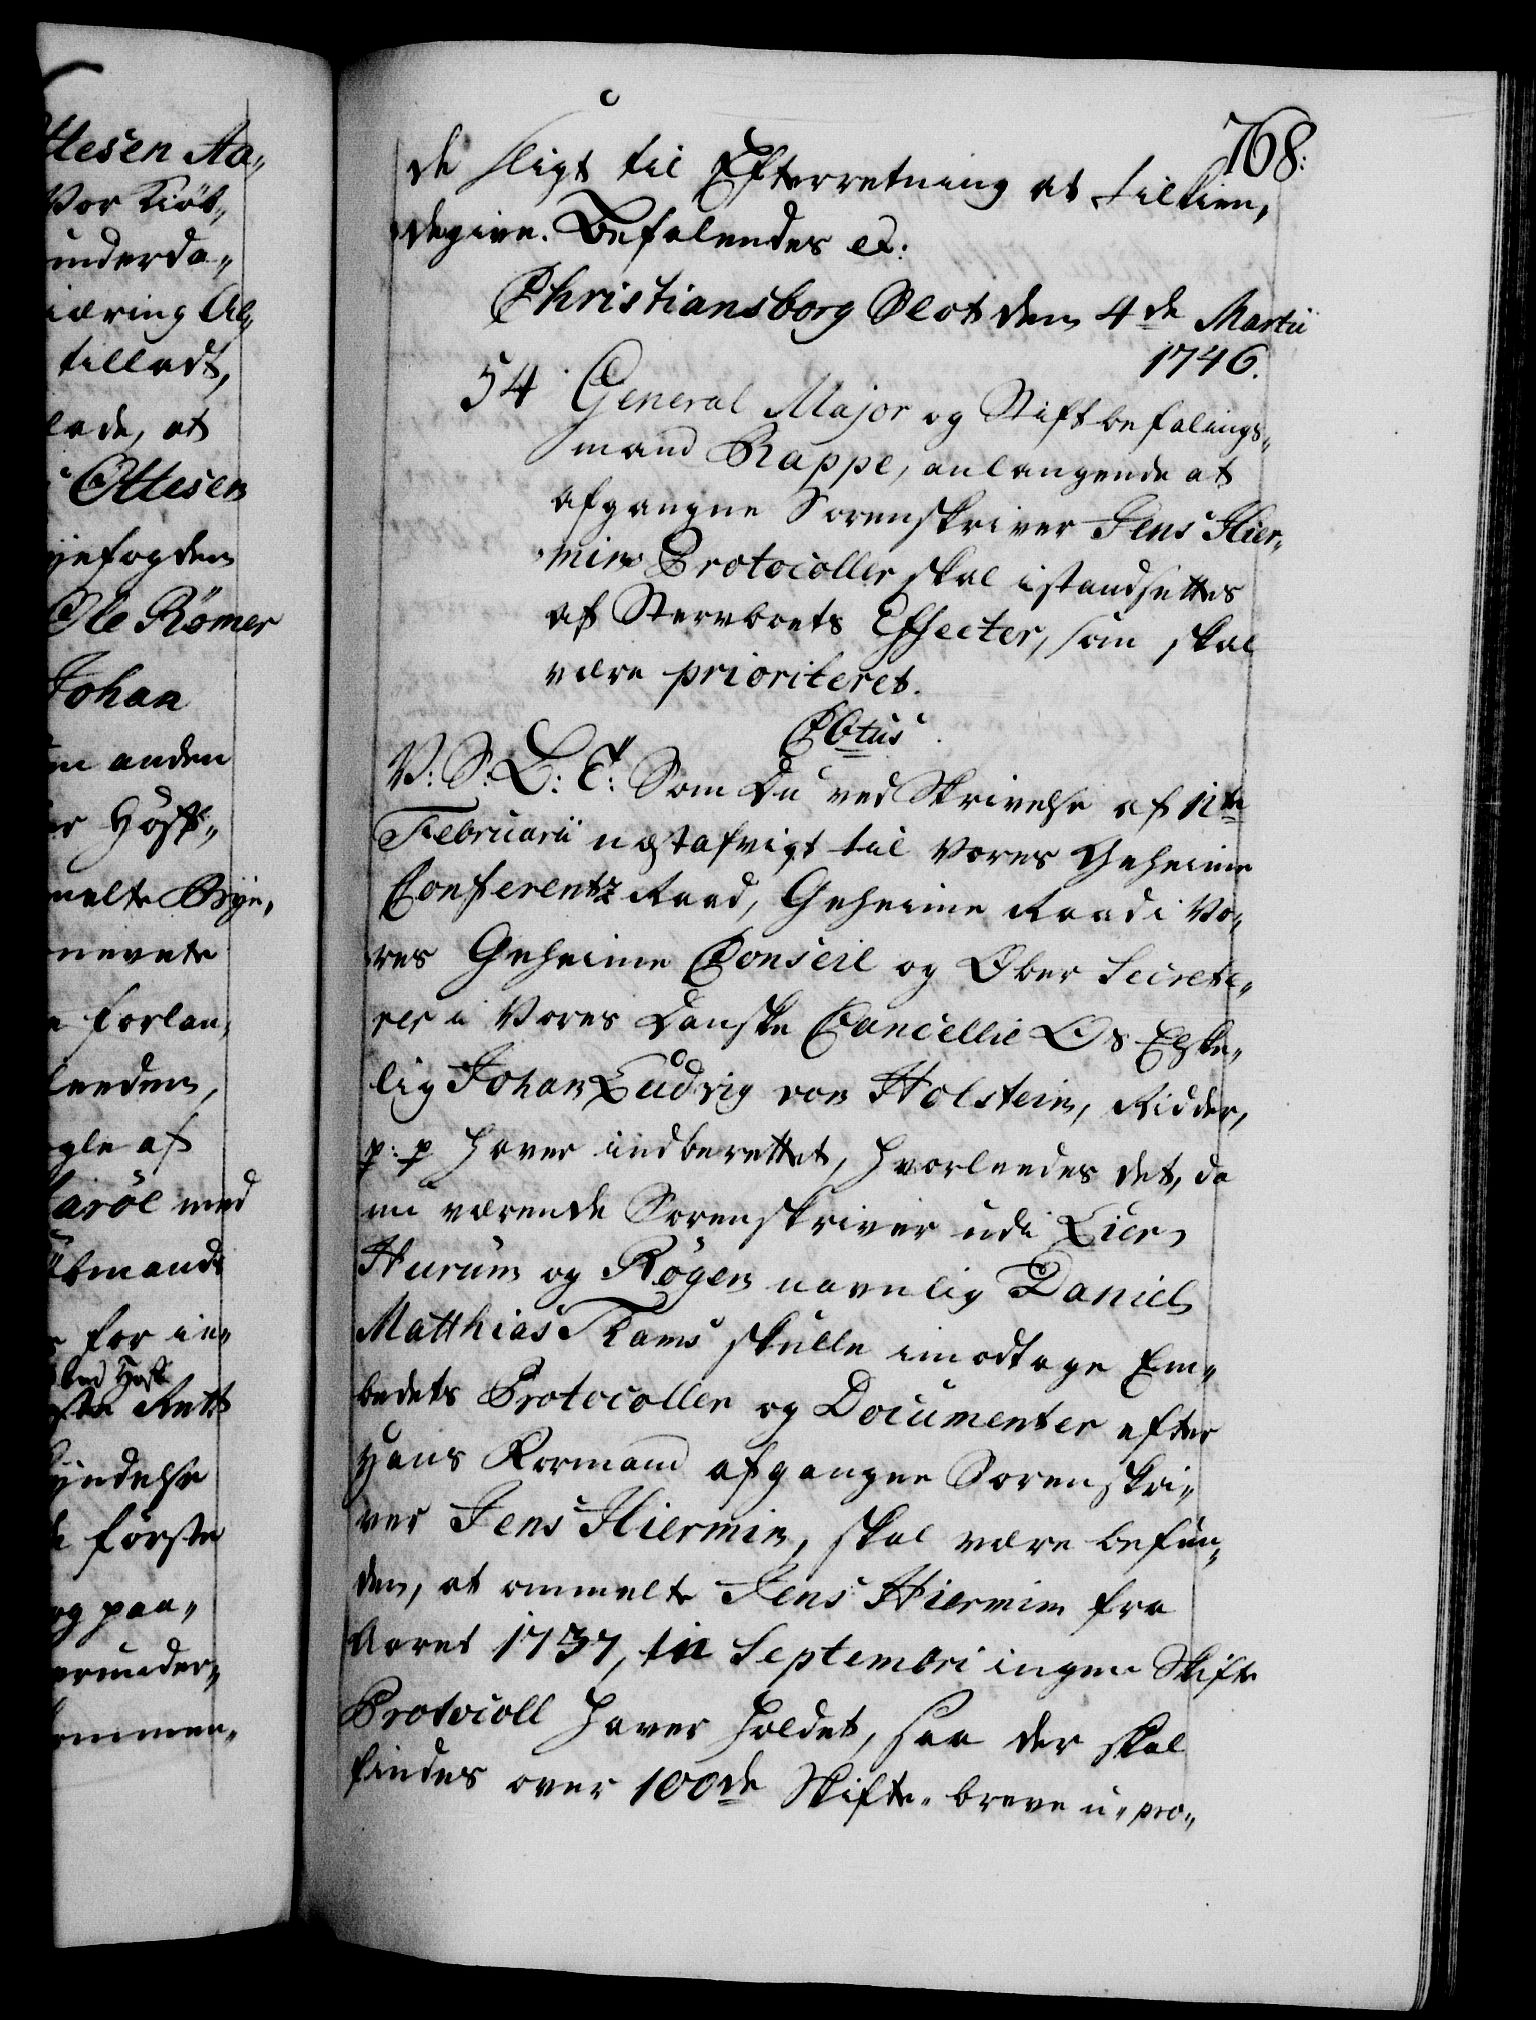 ttesen Aa,,
Vor Kiöb,,
underda,,
iæring Al,,
tilladt,
lade, at
Ottesen
yefogden
Ole Römer
Johan
en anden
er Höyst,,
melte Bye,,
nevnte
forlan,,
leedem,
gle af
med
bmands
for in,,
ved Höyst
Rett
yndelse
første
og paa,,
erunder,,
ommen,,
768:
de sligt til Efterretning at tilkien,,
degive. Befalendes etc:
Christiansborg Slot den 4de Martii
1746.
54 General Major og Stiftbefalings,,
mand Rappe, anlangende at
afgangne Sorenskriver Jens Hier,,
mins Protocoller skal istandsættes
af Stervboets Effecter, som skal
være prioriteret.
Cbtus
V: S: B: T: Som Du ved Skrivelse af 11te
Februarii nestafvigt til Vores Geheime
Conferentz Raad, Geheime Raad i Vo,,
res Geheime Conseil og Ober Secrete,,
rer i Vores Danske Cancellie Os Elske,,
lig Johan Ludvig von Holstein, Ridder,
p: p haver indberettet, hvorleedes det, da
nu værende Sorenskriver udi Lier,
Hurum og Røgen navnlig Daniel
Matthias Rams skulle imodtage Em,,
bedets Protocoller og Documenter efter
Hans Formand afgangne Sorenskri,,
ver Jens Hiermin, skal være befun,,
den, at ommelte Jens Hiermin fra
Aaret 1737, til Septembri ingen Skifte
Protocoll haver holdet, saa der skal
findes over 100de Skifte-breve u-pro,,